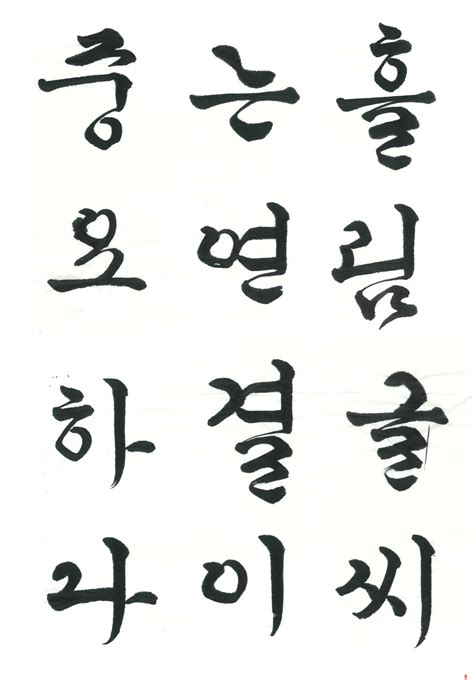 흘림글씨
는연결이
중요하다